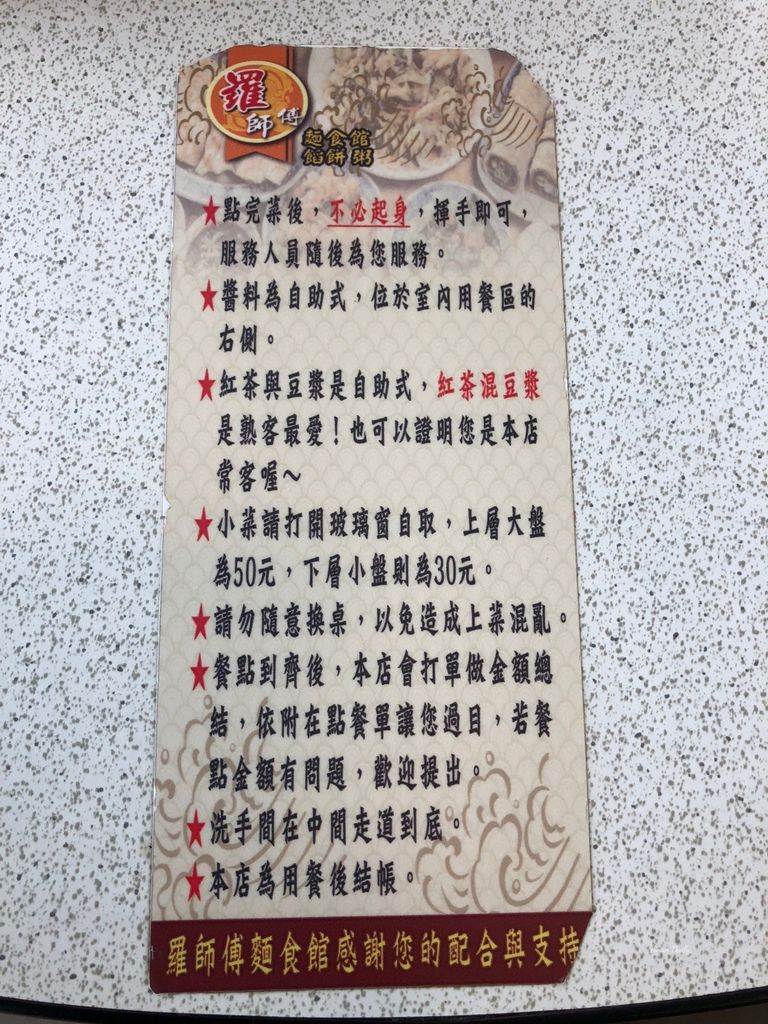 羅
師傅
麵食館
餡餅粥
★點完菜後，不必起身，揮手即可，
服務人員隨後為您服務。
★醬料為自助式，位於室內用餐區的
右側。
★紅茶與豆漿是自助式，紅茶混豆漿
是熟客最愛！也可以證明您是本店
常客喔～
★小菜請打開玻璃窗自取，上層大盤
為50元，下層小盤則為30元。
★請勿隨意換桌，以免造成上菜混亂。
★餐點到齊後，本店會打單做金額總
結，依附在點餐單讓您過目，若餐
點金額有問題，歡迎提出。
★洗手間在中間走道到底。
★本店為用餐後結帳。
羅師傅麵食館感謝您的配合與支持